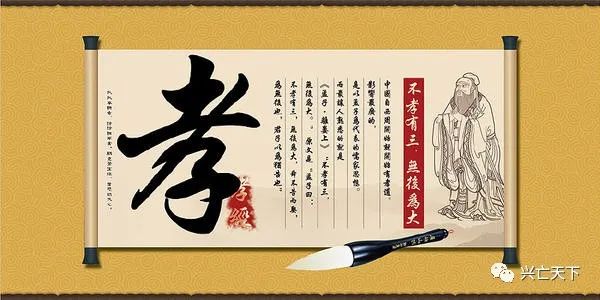 不孝有三，無後爲大
中國自西周開始就開始有孝道，
影響最廣的，
是以孟子爲代表的儒家思想。
而最讓人熟悉的就是
《孟子·離婁上》：“不孝有三，
無後爲大。”原文是：“孟子曰：
不孝有三，無後爲大，舜不告而娶，
爲無後也，君子以爲猶告也。”
孝
孝經
兴亡天下